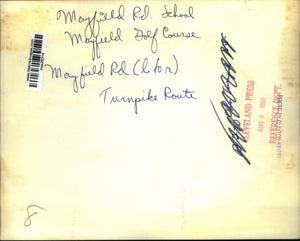 Mayfield Rd. School
Mayfield Golf Course
Mayfield Rd
Turnpike Route
CLEVELAND PRESS
AUG 9
REFERENCE DEPT.
8